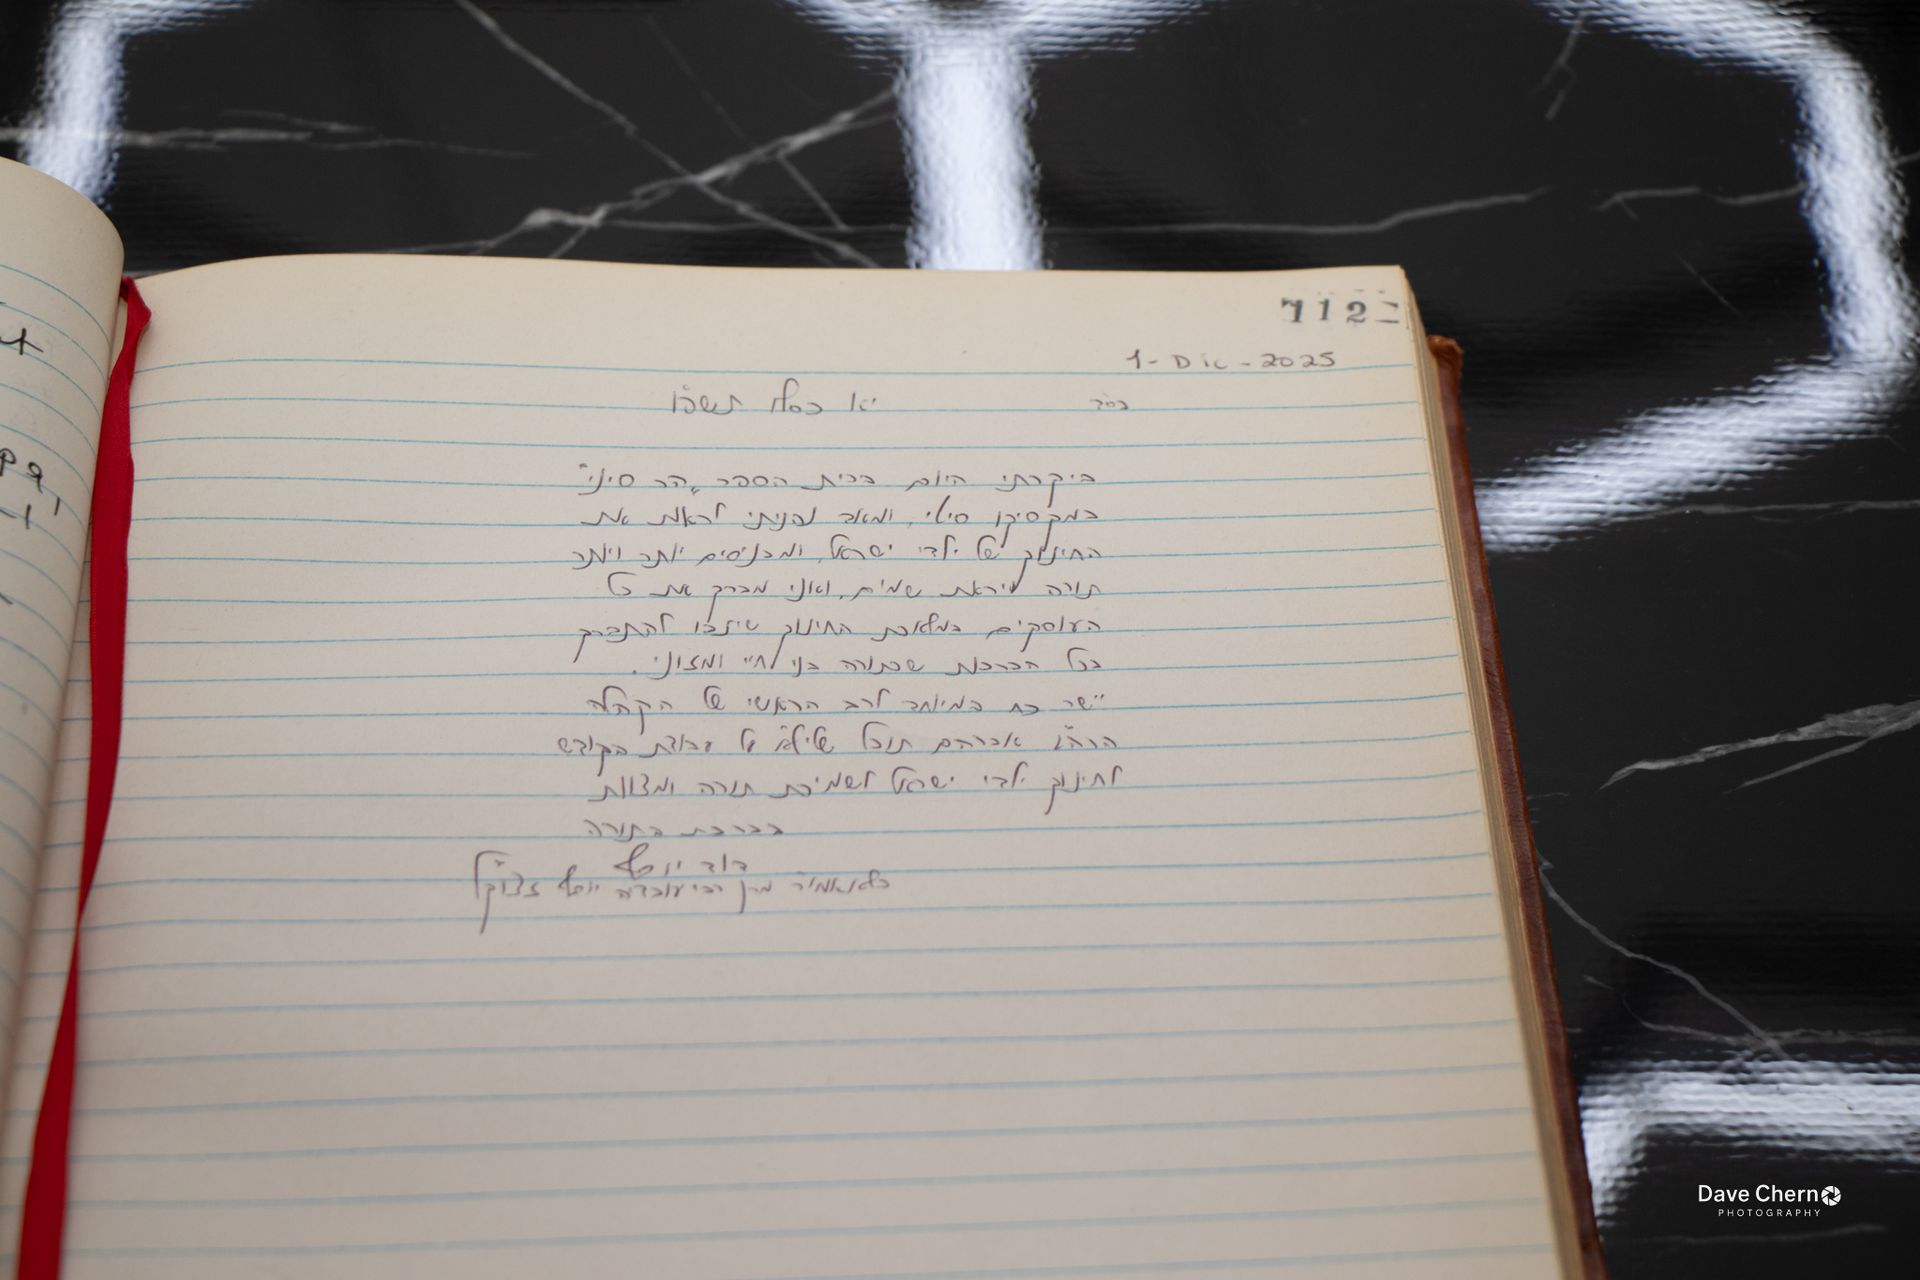 112
1-Dic-2025
בס"ד
יא כסלו תשפ"ו
ביקרתי היום בבית הספר „הר סיני"
במקסיקו סיטי, ומאד נהניתי לראות את
החינוך של ילדי ישראל, ומכניסים יותר ויותר
תורה ויראת שמים, ואני מברך את כל
העוסקים במלאכת החינוך שיזכו להתברך
בכל הברכות שבתורה בני חיי ומזוני.
יישר כח במיוחד לרב הראשי של הקהלה
הרה"ג אברהם טוביל שליט"א על עבודת הקודש
לחינוך ילדי ישראל לשמירת תורה ומצוות
בברכת התורה
דוד יוסף
מרן רבי עובדיה יוסף זצוק"ל
Dave Chern
PHOTOGRAPHY